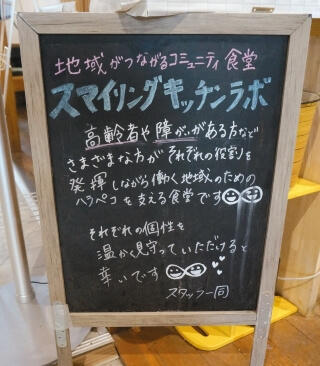 地域がつながるコミュニティ食堂
スマイリングキッチンラボ
高齢者や障がいがある方など
さまざまな方がそれぞれの役割を
発揮しながら働く地域のための
ハラペコを支える食堂です
それぞれの個性を
温かく見守っていただけると
幸いです
スタッフ一同